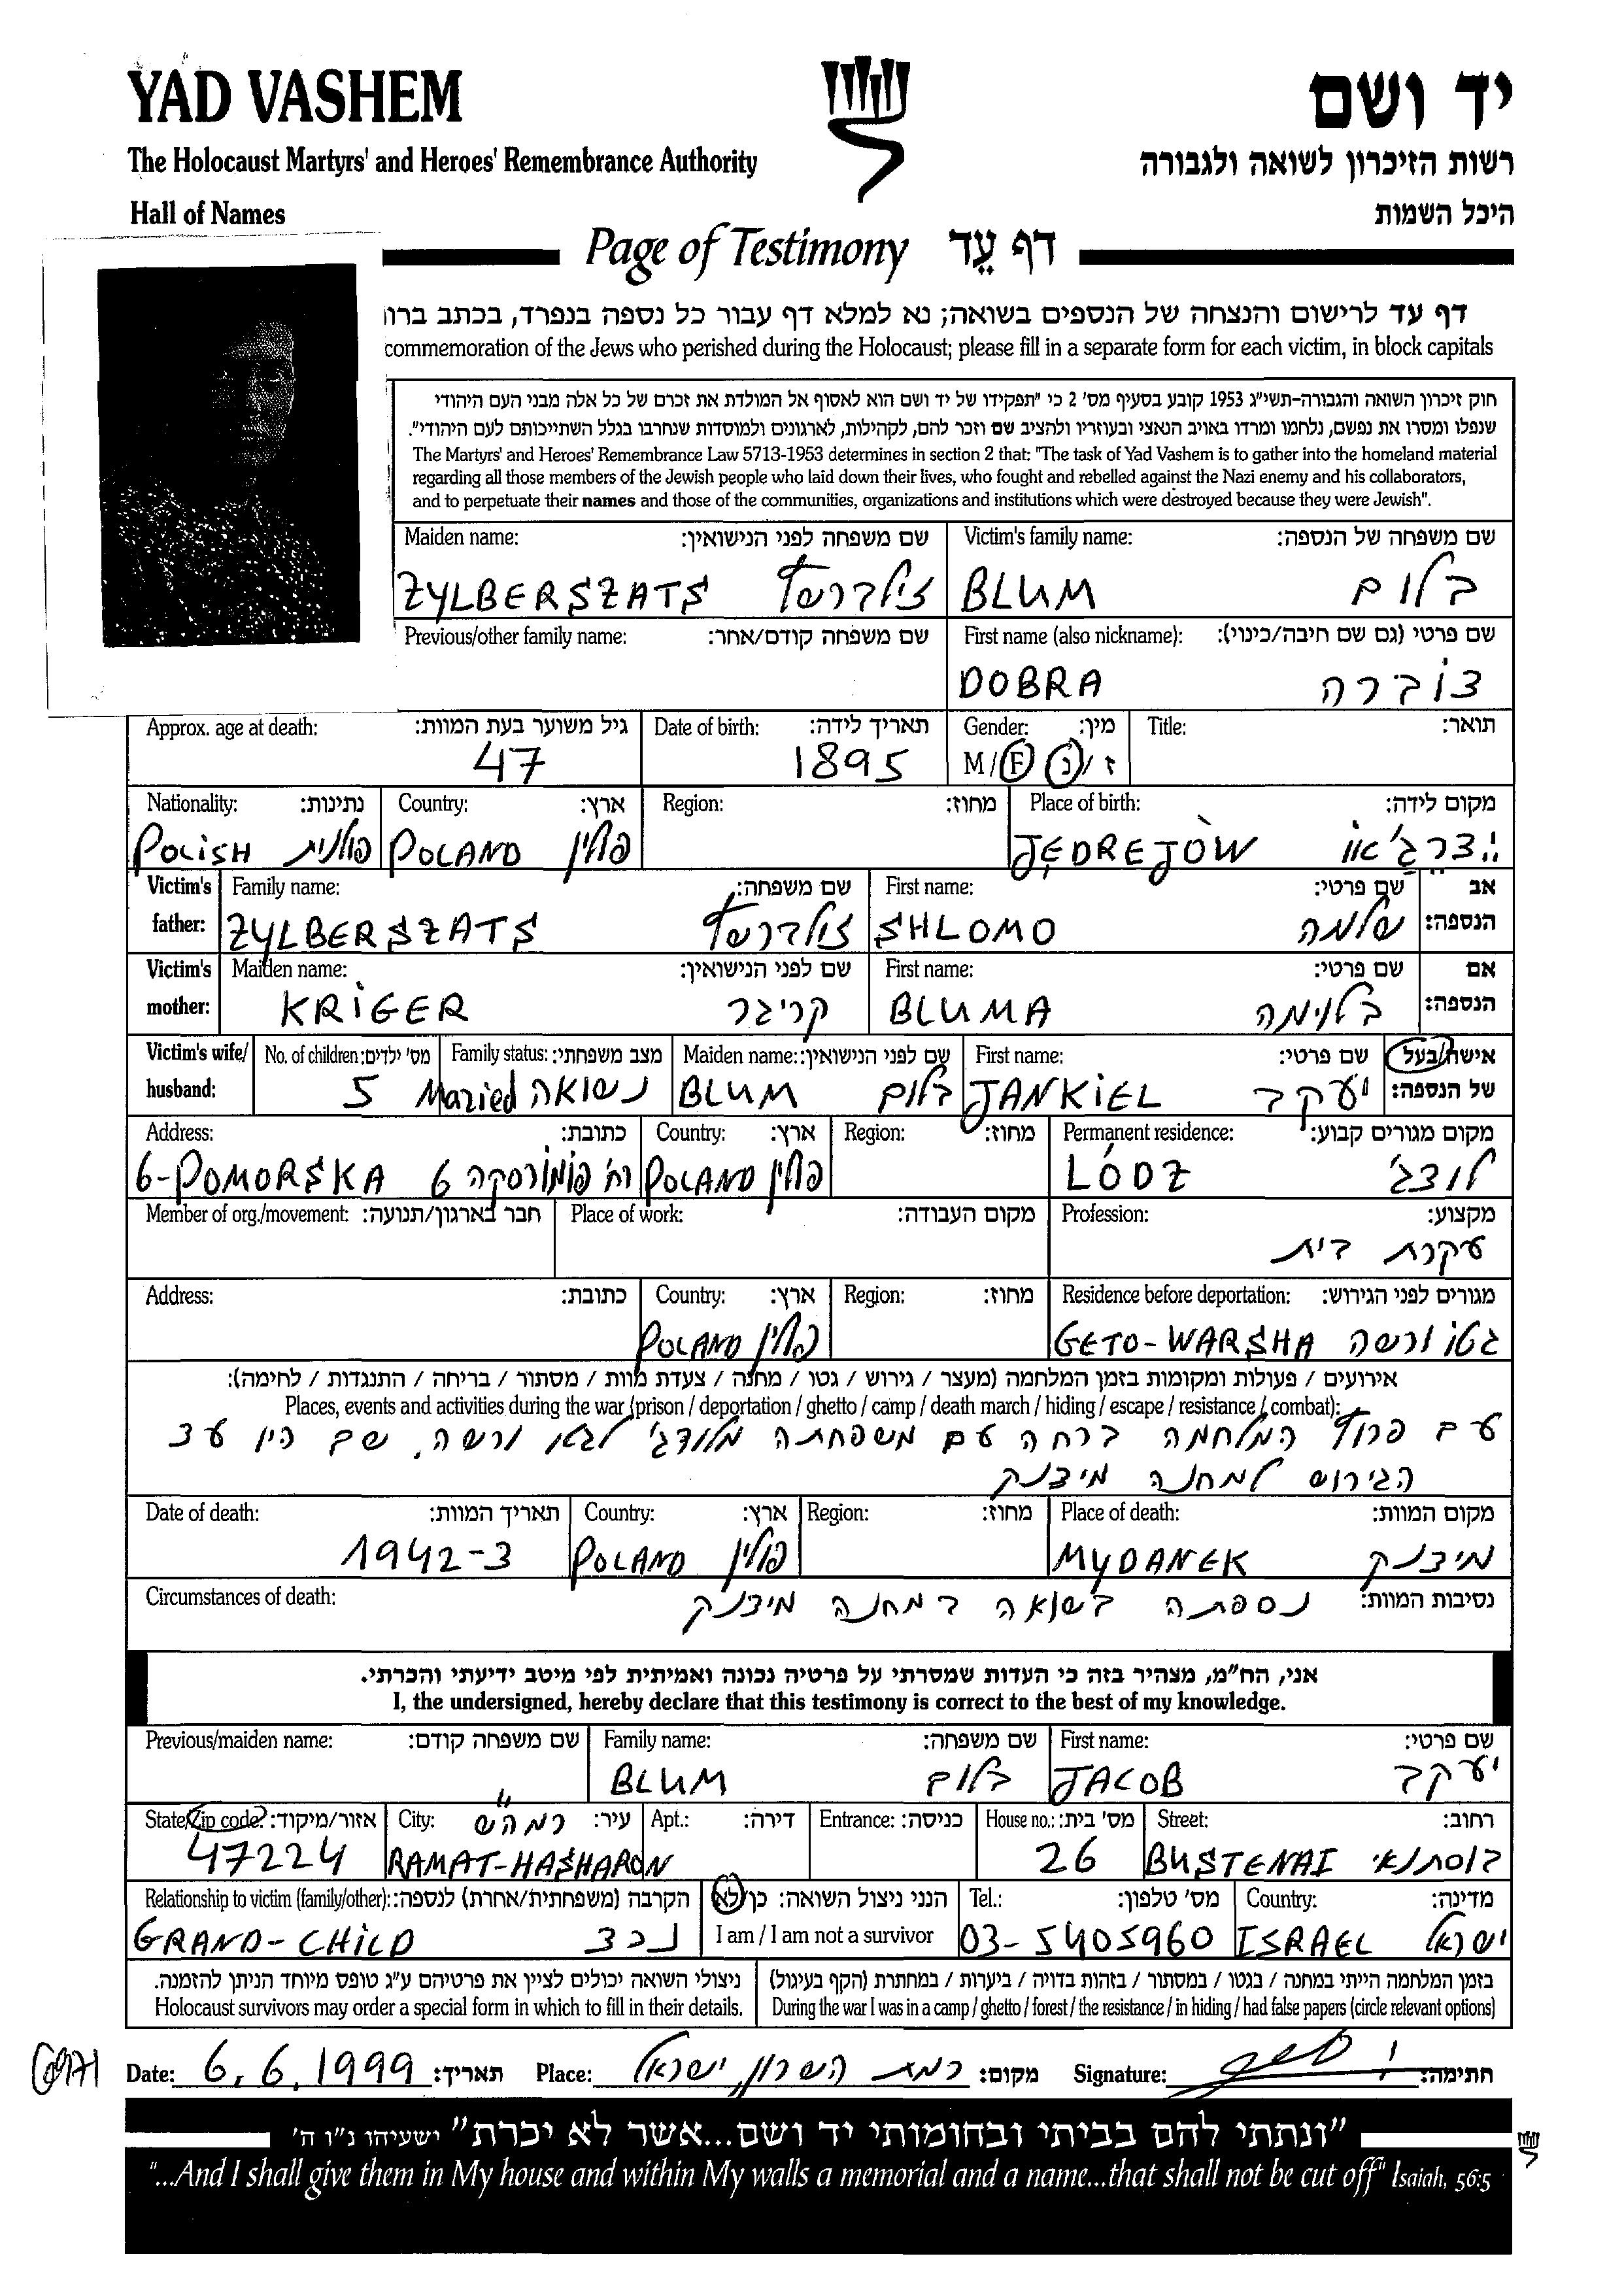 YAD VASHEM יד ושם
The Holocaust Martyrs' and Heroes' Remembrance Authority רשות הזיכרון לשואה ולגבורה
Hall of Names היכל השמות
Page of Testimony דף עֵד
דף עד לרישום והנצחה של הנספים בשואה; נא למלא דף עבור כל נספה בנפרד, בכתב ברו
commemoration of the Jews who perished during the Holocaust; please fill in a separate form for each victim, in block capitals
חוק זיכרון השואה והגבורה-תשי"ג 1953 קובע בסעיף מס' 2 כי "תפקידו של יד ושם הוא לאסוף אל המולדת את זכרם של כל אלה מבני העם היהודי
שנפלו ומסרו את נפשם, נלחמו ומרדו באויב הנאצי ובעוזריו ולהציב שם וזכר להם, לקהילות, לארגונים ולמוסדות שנחרבו בגלל השתייכותם לעם היהודי".
The Martyrs' and Heroes' Remembrance Law 5713-1953 determines in section 2 that: "The task of Yad Vashem is to gather into the homeland material
regarding all those members of the Jewish people who laid down their lives, who fought and rebelled against the Nazi enemy and his collaborators,
and to perpetuate their names and those of the communities, organizations and institutions which were destroyed because they were Jewish".
Maiden name: שם משפחה לפני הנישואין: Victim's family name: שם משפחה של הנספה:
ZYLBERSZATS זילברשץ BLUM בלום
Previous/other family name: שם משפחה קודם/אחר: First name (also nickname): שם פרטי (גם שם חיבה/כינוי):
DOBRA דוברה
Approx. age at death: גיל משוער בעת המוות: Date of birth: תאריך לידה: Gender: מין: Title: תואר:
47 1895 M/F ז/נ
Nationality: נתינות: Country: ארץ: Region: מחוז: Place of birth: מקום לידה:
POLISH פולנית POLAND פולין JĘDREJÓW ידרג'אוו
Victim's father: Family name: שם משפחה: First name: שם פרטי: אב הנספה:
ZYLBERSZATS זילברשץ SHLOMO שלמה
Victim's mother: Maiden name: שם לפני הנישואין: First name: שם פרטי: אם הנספה:
KRIGER קריגר BLUMA בלימה
Victim's wife/ husband: No. of children: מס' ילדים: Family status: מצב משפחתי: Maiden name: שם לפני הנישואין: First name: שם פרטי: אישה/בעל של הנספה:
5 Maried נשואה BLUM בלום JANKIEL יעקב
Address: כתובת: Country: ארץ: Region: מחוז: Permanent residence: מקום מגורים קבוע:
6-POMORSKA רח' פומורסקה 6 POLAND פולין LÓDZ לודג'
Member of org./movement: חבר בארגון/תנועה: Place of work: מקום העבודה: Profession: מקצוע:
עקרת בית
Address: כתובת: Country: ארץ: Region: מחוז: Residence before deportation: מגורים לפני הגירוש:
POLAND פולין GETO-WARSHA גטו ורשה
אירועים / פעולות ומקומות בזמן המלחמה (מעצר / גירוש / גטו / מחנה / צעדת מוות / מסתור / בריחה / התנגדות / לחימה):
Places, events and activities during the war (prison / deportation / ghetto / camp / death march / hiding / escape / resistance / combat):
עם פרוץ המלחמה ברחה עם משפחתה מלודג' לגטו ורשה, שם היו עד
הגירוש למחנה מידנק
Date of death: תאריך המוות: Country: ארץ: Region: מחוז: Place of death: מקום המוות:
1942-3 POLAND פולין MYDANEK מידנק
Circumstances of death: נסיבות המוות: נספתה בשואה במחנה מידנק
אני, הח"מ, מצהיר בזה כי העדות שמסרתי על פרטיה נכונה ואמיתית לפי מיטב ידיעתי והכרתי.
I, the undersigned, hereby declare that this testimony is correct to the best of my knowledge.
Previous/maiden name: שם משפחה קודם: Family name: שם משפחה: First name: שם פרטי:
BLUM בלום JACOB יעקב
State/Zip code: אזור/מיקוד: City: עיר: רמה"ש Apt.: דירה: Entrance: כניסה: House no.: מס' בית: Street: רחוב:
47224 RAMAT-HASHARON 26 BUSTENAI בוסתנאי
Relationship to victim (family/other): הקרבה (משפחתית/אחרת) לנספה: הנני ניצול השואה: כן/לא Tel.: מס' טלפון: Country: מדינה:
GRAND-CHILD נכד I am / I am not a survivor 03-5405960 ISRAEL ישראל
ניצולי השואה יכולים לציין את פרטיהם ע"ג טופס מיוחד הניתן להזמנה. בזמן המלחמה הייתי במחנה / בגטו / במסתור / בזהות בדויה / ביערות / במחתרת (הקף בעיגול)
Holocaust survivors may order a special form in which to fill in their details. During the war I was in a camp / ghetto / forest / the resistance / in hiding / had false papers (circle relevant options)
Date: 6.6.1999 תאריך: Place: רמת השרון, ישראל מקום: Signature: חתימה:
"ונתתי להם בביתי ובחומותי יד ושם...אשר לא יכרת" ישעיהו נ"ו ה'
"...And I shall give them in My house and within My walls a memorial and a name...that shall not be cut off" Isaiah, 56:5